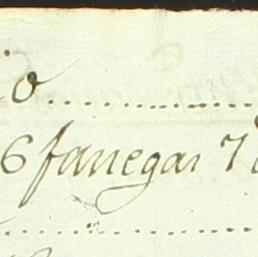 io
6 fanegas 7